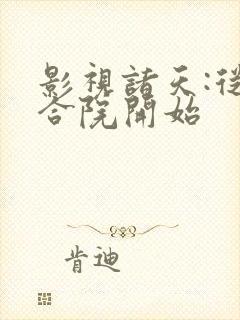 影視諸天:從
合院開始
肯迪